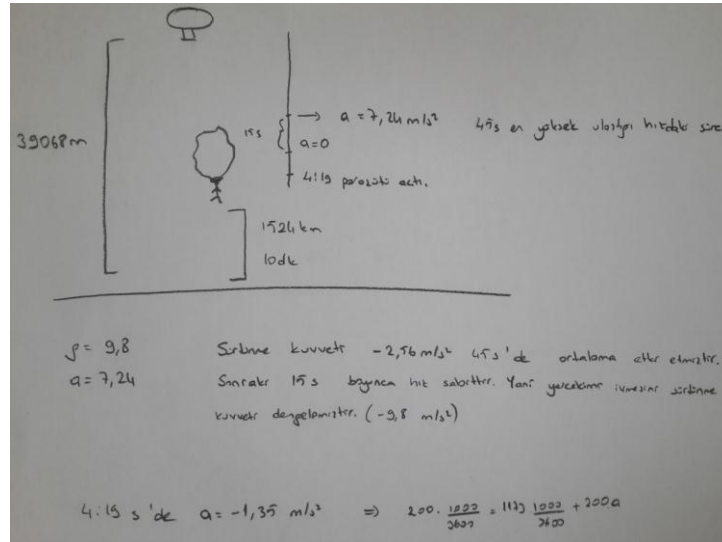 39068m
15s
→ a = 7,24 m/s²
a=0
4:19 paraşütü açtı.
45s en yüksek ulaştığı hızdaki süre
1524 km
10dk
g = 9,8
a = 7,24
Sürtünme kuvveti -2,56 m/s² 45s'de ortalama etki etmiştir.
Sonraki 15s boyunca hız sabittir. Yani yerçekimi ivmesini sürtünme
kuvveti dengelemiştir. (-9,8 m/s²)
4:19 s'de a = -1,35 m/s² ⇒ 200 · 1000/3600 = 1173 · 1000/3600 + 200a